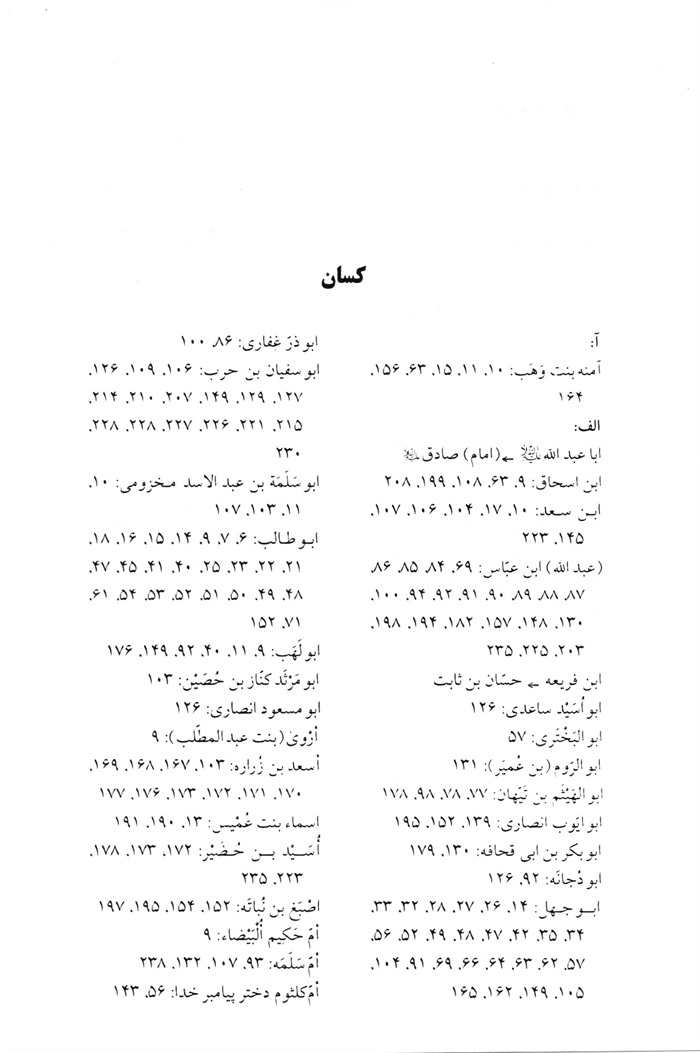 کسان
آ:
آمنه بنت وَهَب: ۱۰، ۱۱، ۱۵، ۶۳، ۱۵۶،
۱۶۴
الف:
ابا عبد الله ← (امام) صادق
ابن اسحاق: ۹، ۶۳، ۱۰۸، ۱۹۹، ۲۰۸
ابن سعد: ۱۰، ۱۷، ۱۰۴، ۱۰۶، ۱۰۷،
۱۴۵، ۲۲۳
(عبد الله) ابن عبّاس: ۶۹، ۸۴، ۸۵، ۸۶،
۸۷، ۸۸، ۸۹، ۹۰، ۹۱، ۹۲، ۹۴، ۱۰۰،
۱۳۰، ۱۴۸، ۱۵۷، ۱۸۲، ۱۹۴، ۱۹۸،
۲۰۳، ۲۲۵، ۲۳۵
ابن فریعه ← حسّان بن ثابت
ابو اُسَیْد ساعدی: ۱۲۶
ابو البَخْتَری: ۵۷
ابو الرّوم (بن عُمیَر): ۱۳۱
ابو الهَیْثَم بن تَیّهان: ۷۷، ۷۸، ۹۸، ۱۷۸
ابو ایّوب انصاری: ۱۳۹، ۱۵۲، ۱۹۵
ابو بکر بن ابی قحافه: ۱۳۰، ۱۷۹
ابو دُجانَه: ۹۲، ۱۲۶
ابو جهل: ۱۴، ۲۶، ۲۷، ۲۸، ۳۲، ۳۳،
۳۴، ۳۵، ۴۲، ۴۷، ۴۸، ۴۹، ۵۲، ۵۶،
۵۷، ۶۲، ۶۳، ۶۴، ۶۶، ۶۹، ۹۱، ۱۰۴،
۱۰۵، ۱۴۹، ۱۶۲، ۱۶۵
ابو ذرّ غِفاری: ۸۶، ۱۰۰
ابو سفیان بن حرب: ۱۰۶، ۱۰۹، ۱۲۶،
۱۲۷، ۱۲۹، ۱۴۹، ۲۰۷، ۲۱۰، ۲۱۴،
۲۱۵، ۲۲۱، ۲۲۶، ۲۲۷، ۲۲۸، ۲۲۸،
۲۳۰
ابو سَلَمَة بن عبد الاسد مخزومی: ۱۰،
۱۱، ۱۰۳، ۱۰۷
ابو طالب: ۶، ۷، ۹، ۱۴، ۱۵، ۱۶، ۱۸،
۲۱، ۲۲، ۲۳، ۲۵، ۴۰، ۴۱، ۴۵، ۴۷،
۴۸، ۴۹، ۵۰، ۵۱، ۵۲، ۵۳، ۵۴، ۶۱،
۷۱، ۱۵۲
ابو لَهَب: ۹، ۱۱، ۴۰، ۹۲، ۱۴۹، ۱۷۶
ابو مَرْثَد کنّاز بن حُصَیْن: ۱۰۳
ابو مسعود انصاری: ۱۲۶
أرْویٰ (بنت عبد المطّلب): ۹
أسعد بن زُراره: ۱۰۳، ۱۶۷، ۱۶۸، ۱۶۹،
۱۷۰، ۱۷۱، ۱۷۲، ۱۷۳، ۱۷۶، ۱۷۷
اسماء بنت عُمَیْس: ۱۳، ۱۹۰، ۱۹۱
أُسَیْد بن حُضَیْر: ۱۷۲، ۱۷۳، ۱۷۸،
۲۲۳، ۲۳۵
اصْبَغ بن نُباتَه: ۱۵۲، ۱۵۴، ۱۹۵، ۱۹۷
أمّ حَکیم الْبَیْضاء: ۹
أمّ سَلَمَه: ۹۳، ۱۰۷، ۱۳۲، ۲۳۸
أمّ کلثوم دختر پیامبر خدا: ۵۶، ۱۴۳